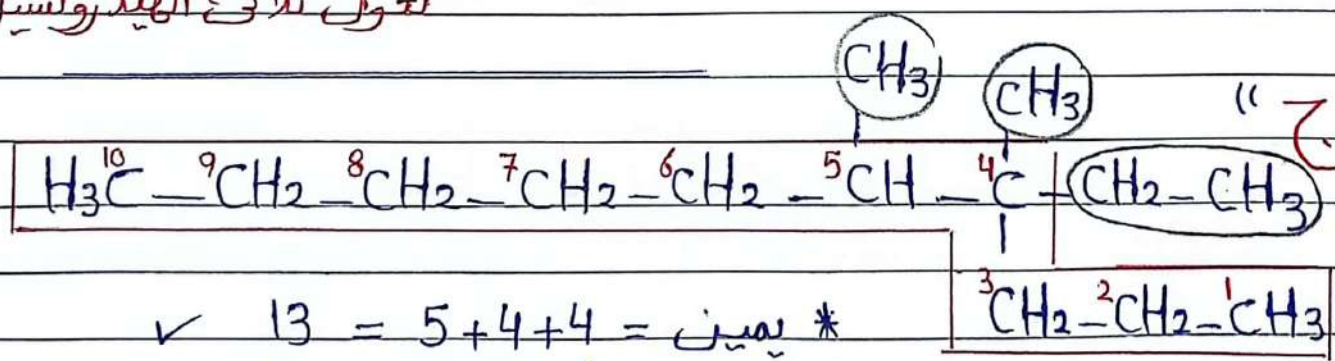 CH3 CH3
ج "
H3C10 — 9CH2 — 8CH2 — 7CH2 — 6CH2 — 5CH — 4C — CH2 — CH3
3CH2 — 2CH2 — 1CH3
* يمين = 4+4+5 = 13 ✓